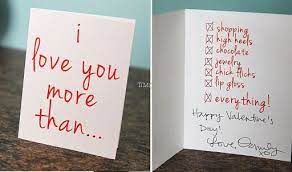 i
love you
more
than...
shopping
high heels
chocolate
jewelry
chick flicks
lip gloss
everything!
Happy Valentine's
Day!
Love, Family
xo